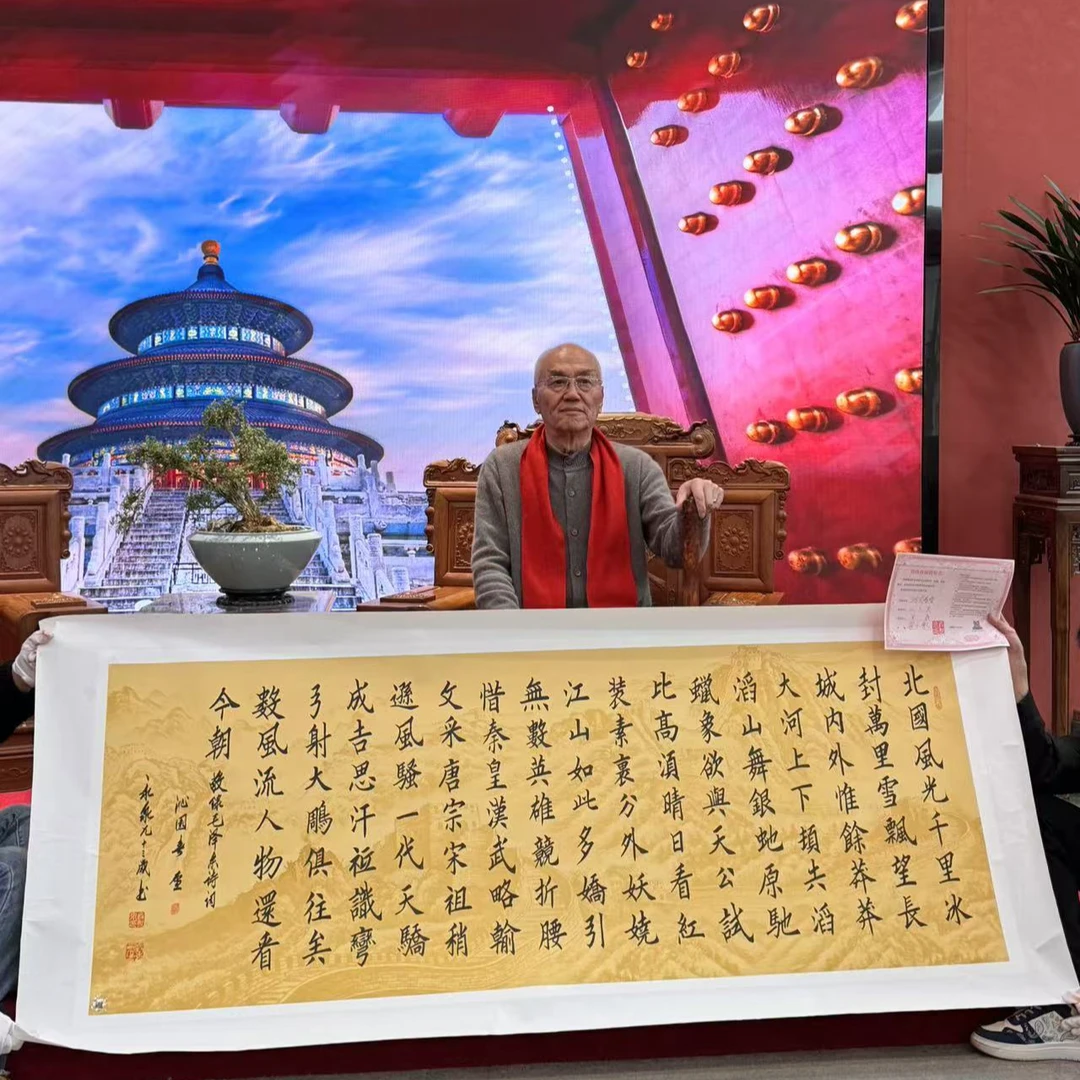 北國風光千里冰
封萬里雪飄望長
城內外惟餘莽莽
大河上下頓失滔
滔山舞銀蛇原馳
蠟象欲與天公試
比高須晴日看紅
裝素裹分外妖嬈
江山如此多嬌引
無數英雄競折腰
惜秦皇漢武略輸
文采唐宗宋祖稍
遜風騷一代天驕
成吉思汗祗識彎
弓射大鵰俱往矣
數風流人物還看
今朝
敬錄毛澤東詩詞
沁園春雪